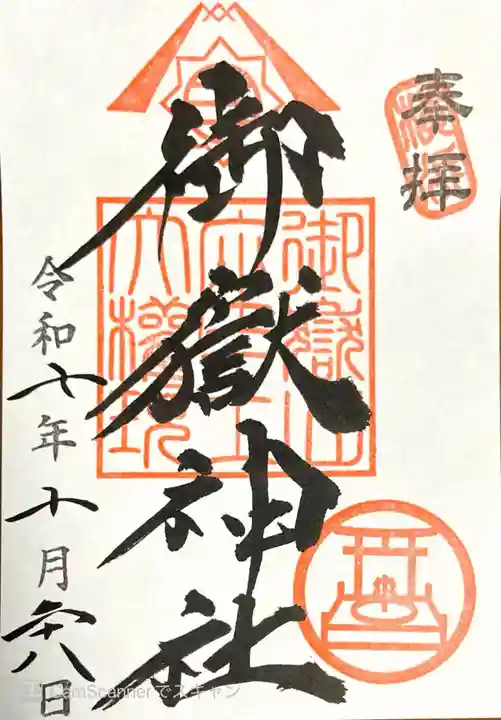 奉拝
御嶽山
大權現
御嶽神社
令和七年十月廿八日
CamScannerでスキャン